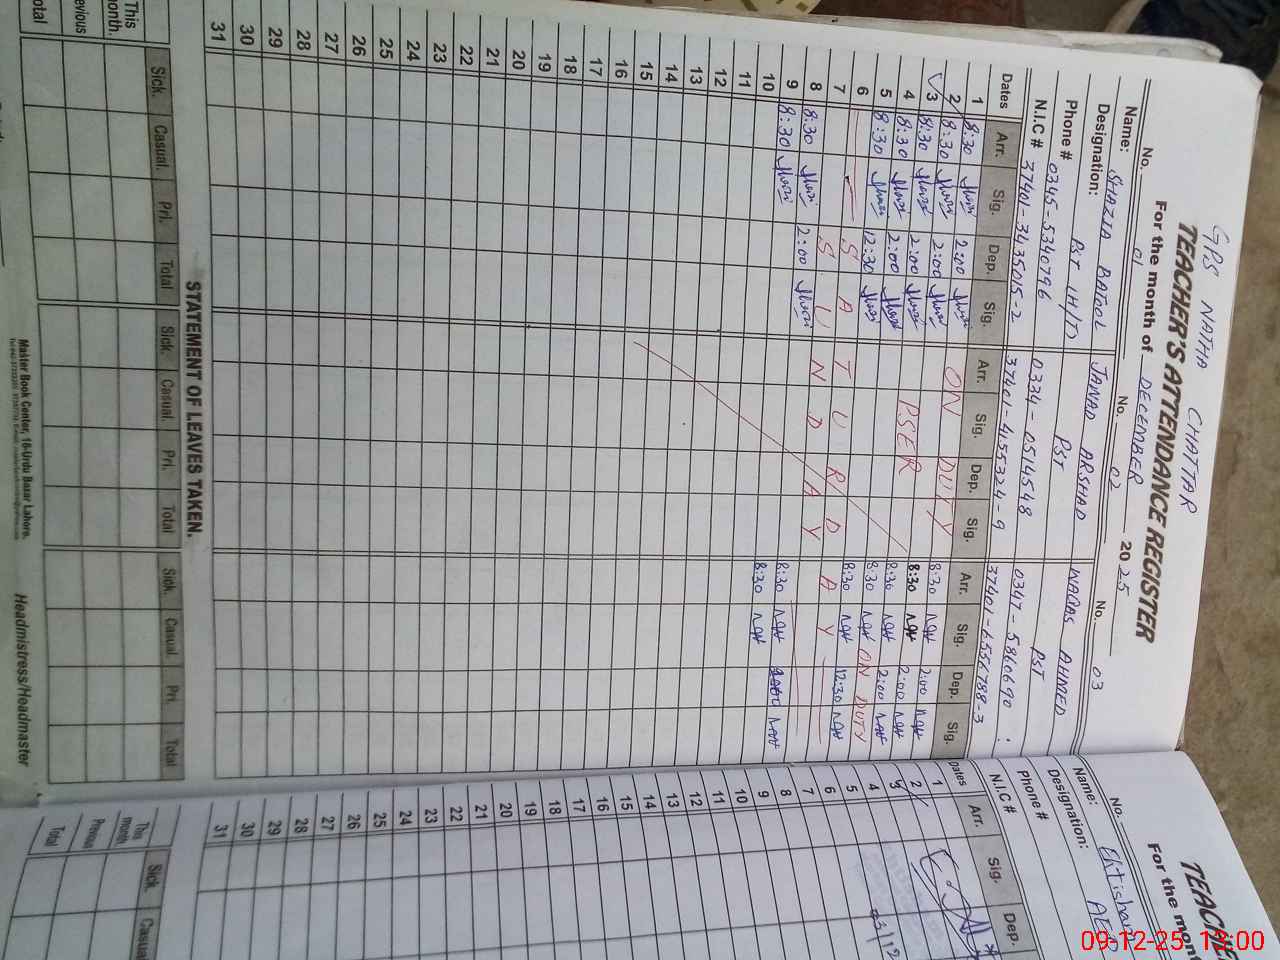 GPS NATHA CHATTAR
TEACHER'S ATTENDANCE REGISTER
For the month of DECEMBER 2025
No. 01 No. 02 No. 03
Name: SHAZIA BATOOL JAWAD ARSHAD WAQAS AHMED
Designation: PST (H/T) PST PST
Phone # 0345-5340796 0334-0514548 0347-5860690
N.I.C # 37401-3435015-2 37401-4155324-9 37401-6556788-3
Dates Arr. Sig. Dep. Sig. Arr. Sig. Dep. Sig. Arr. Sig. Dep. Sig.
1 8:30 2:00 ON DUTY 8:30 2:00
2 8:30 2:00 8:30 2:00
3 8:30 2:00 PSER 8:30 2:00
4 8:30 2:00 8:30 ON DUTY
5 8:30 12:30 8:30 12:30
6 SATURDAY
7 SUNDAY
8 8:30 2:00 8:30
9 8:30 8:30
10
11
12
13
14
15
16
17
18
19
20
21
22
23
24
25
26
27
28
29
30
31
STATEMENT OF LEAVES TAKEN.
Sick. Casual. Pri. Total Sick. Casual. Pri. Total Sick. Casual. Pri. Total
This month.
Previous
Total
Master Book Center, 16-Urdu Bazar Lahore.
Headmistress/Headmaster
TEACHE
For the mont
No.
Name:
Designation:
Phone #
N.I.C #
Dates Arr. Sig. Dep.
1
2
3
4
5
6
7
8
9
10
11
12
13
14
15
16
17
18
19
20
21
22
23
24
25
26
27
28
29
30
31
Sick. Casual
This month
Previous
Total